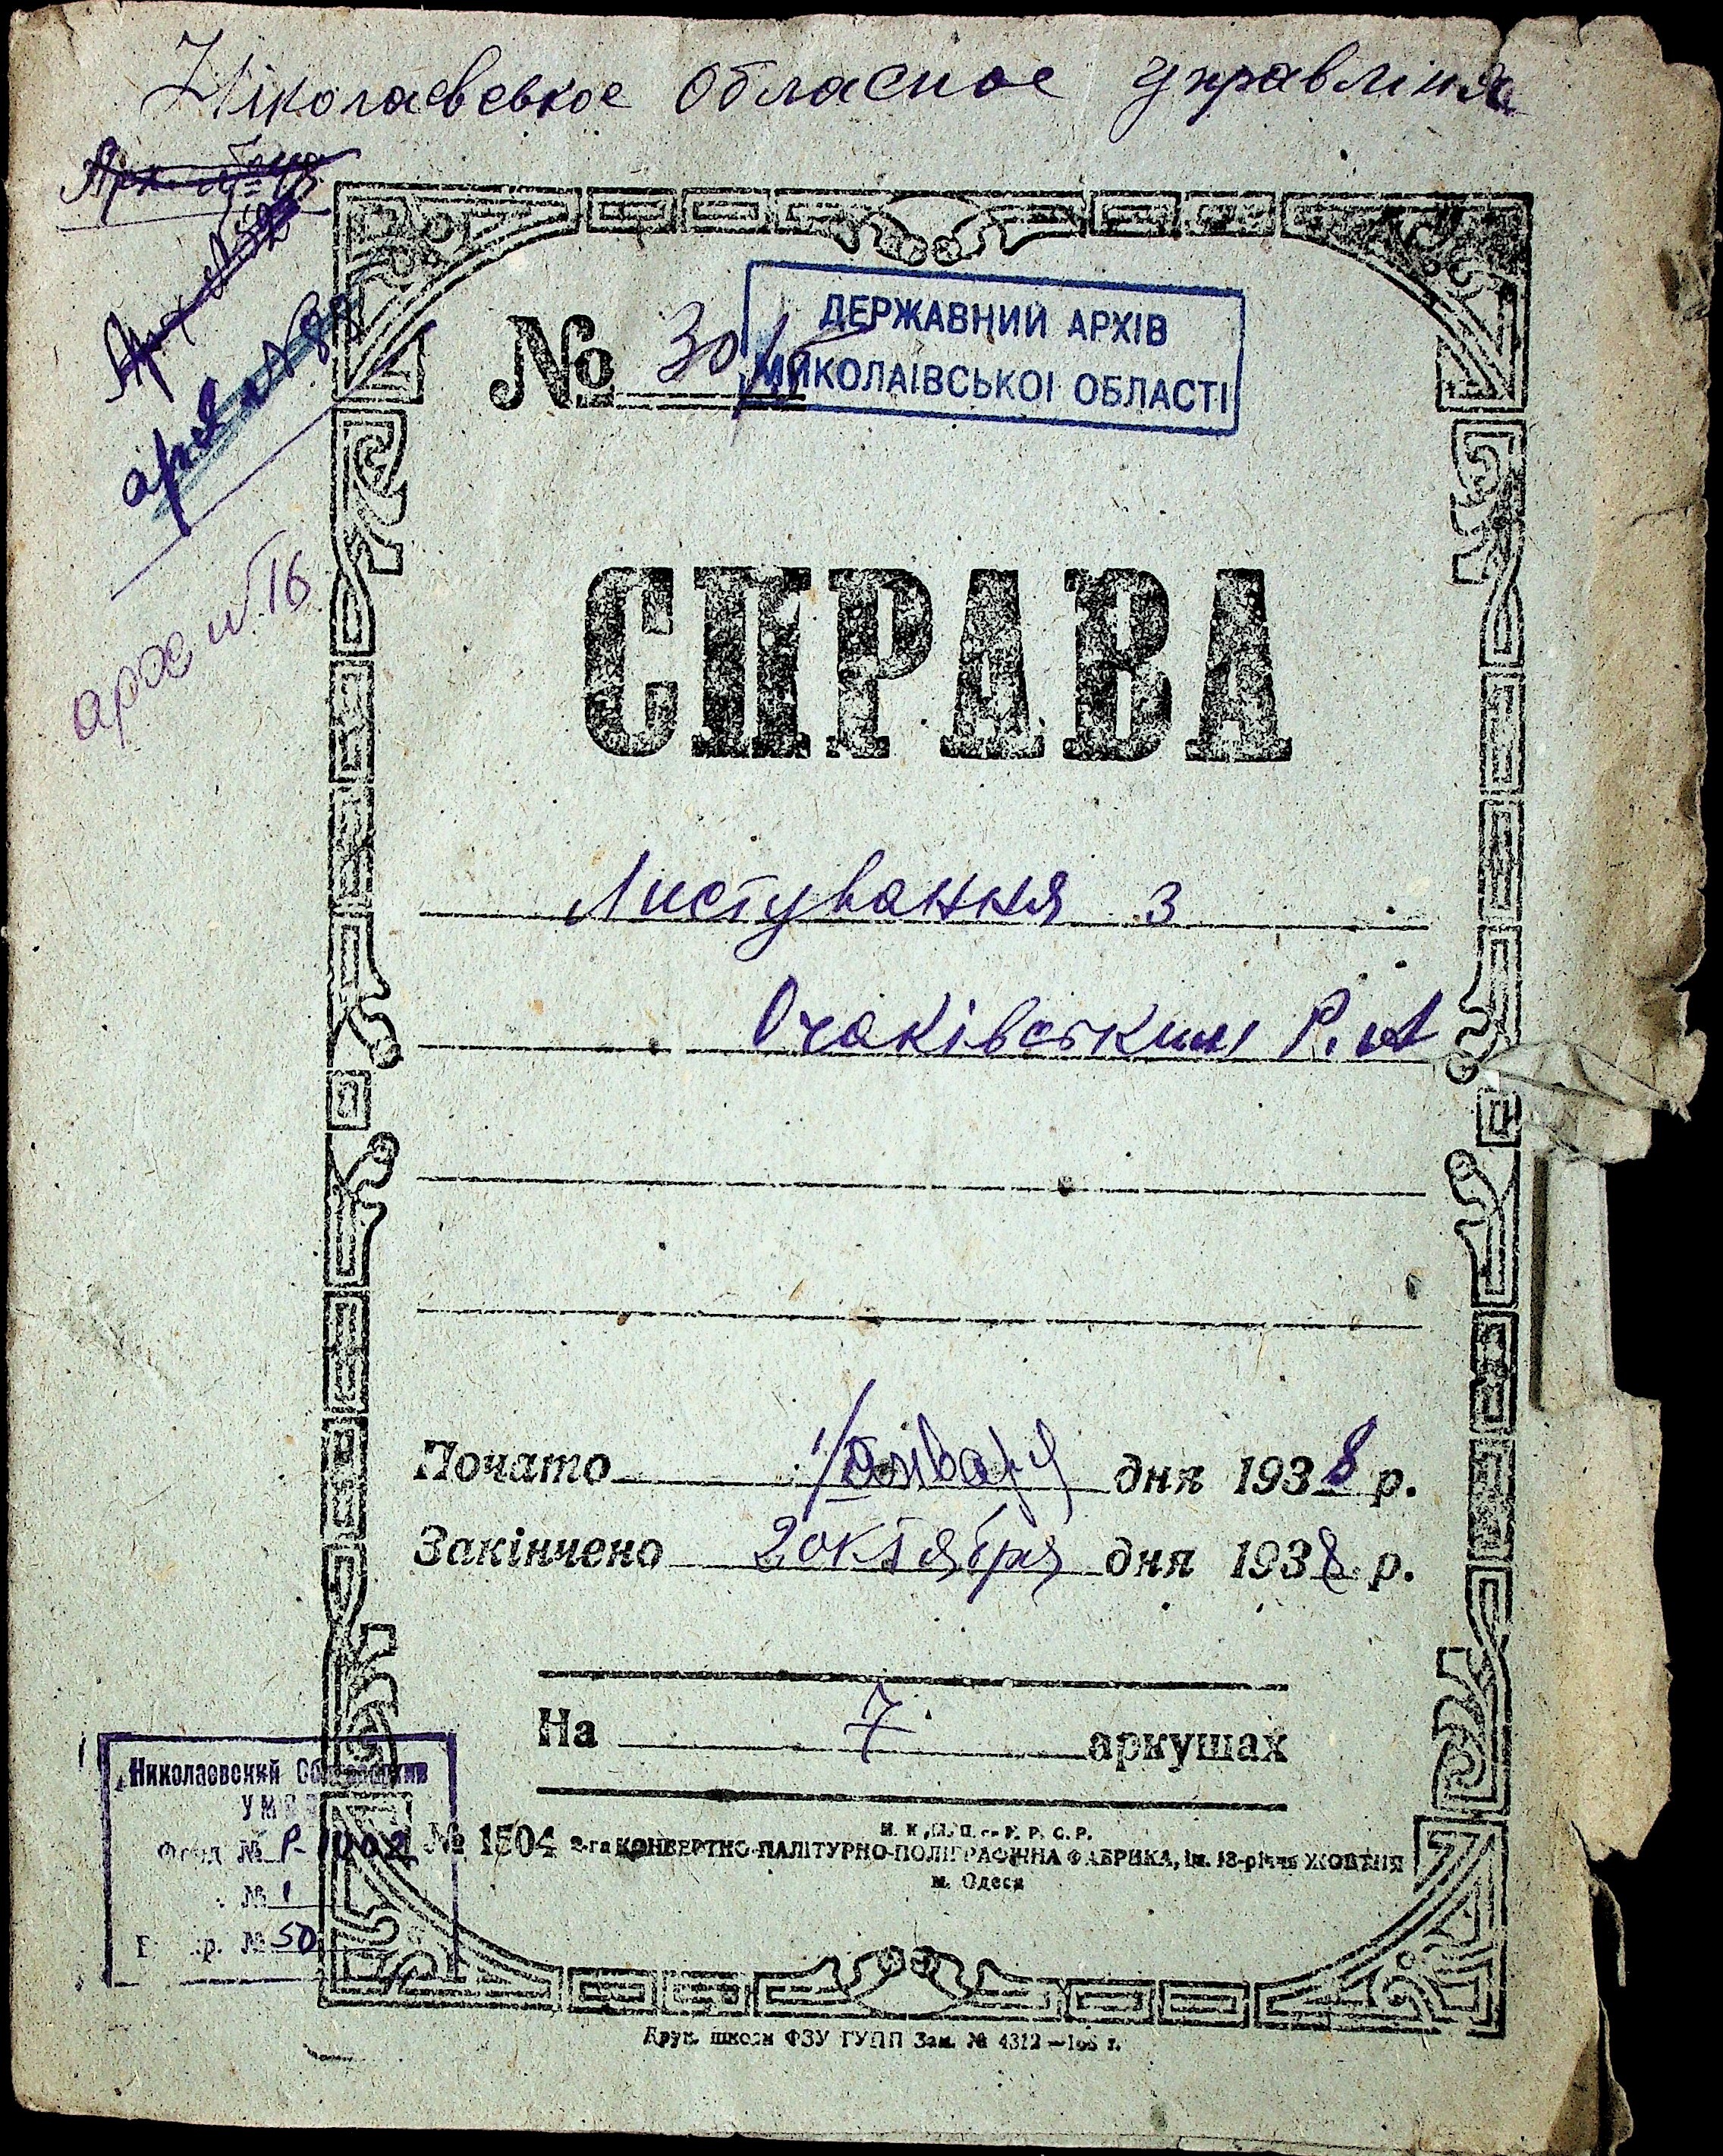 Ніколаевське обласное управління
Арх. №
арх №
арх №16
№ 30
ДЕРЖАВНИЙ АРХІВ
МИКОЛАІВСЬКОІ ОБЛАСТІ
СПРАВА
Листування з
Очаківським Р.
Почато 1/января дня 1938 р.
Закінчено 2 октября дня 1938 р.
На 7 аркушах
Николаевский
Фонд № Р-1002
№ 1
№ 50
№ 1504 2-га КОНВЕРТНО-ПАЛІТУРНО-ПОЛІГРАФІЧНА ФАБРИКА, ім. 13-річчя ЖОВТНЯ
м. Одеса
Друк. школи ФЗУ ГУПП Зам. № 4312